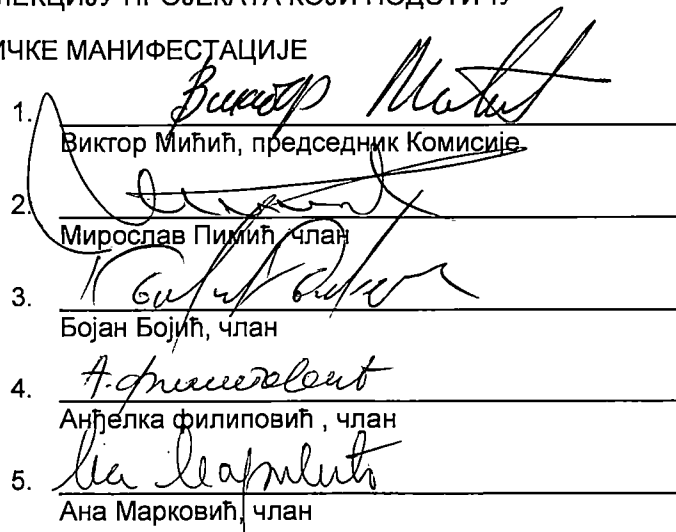 ЛЕКЦИЈУ ПРОЈЕКАТА КОЈИ ПОДСТИЧУ
ИЧКЕ МАНИФЕСТАЦИЈЕ
1. Виктор
Виктор Мићић, председник Комисије
2.
Мирослав Пимић, члан
3.
Бојан Бојић, члан
4.
Анђелка филиповић , члан
5.
Ана Марковић, члан